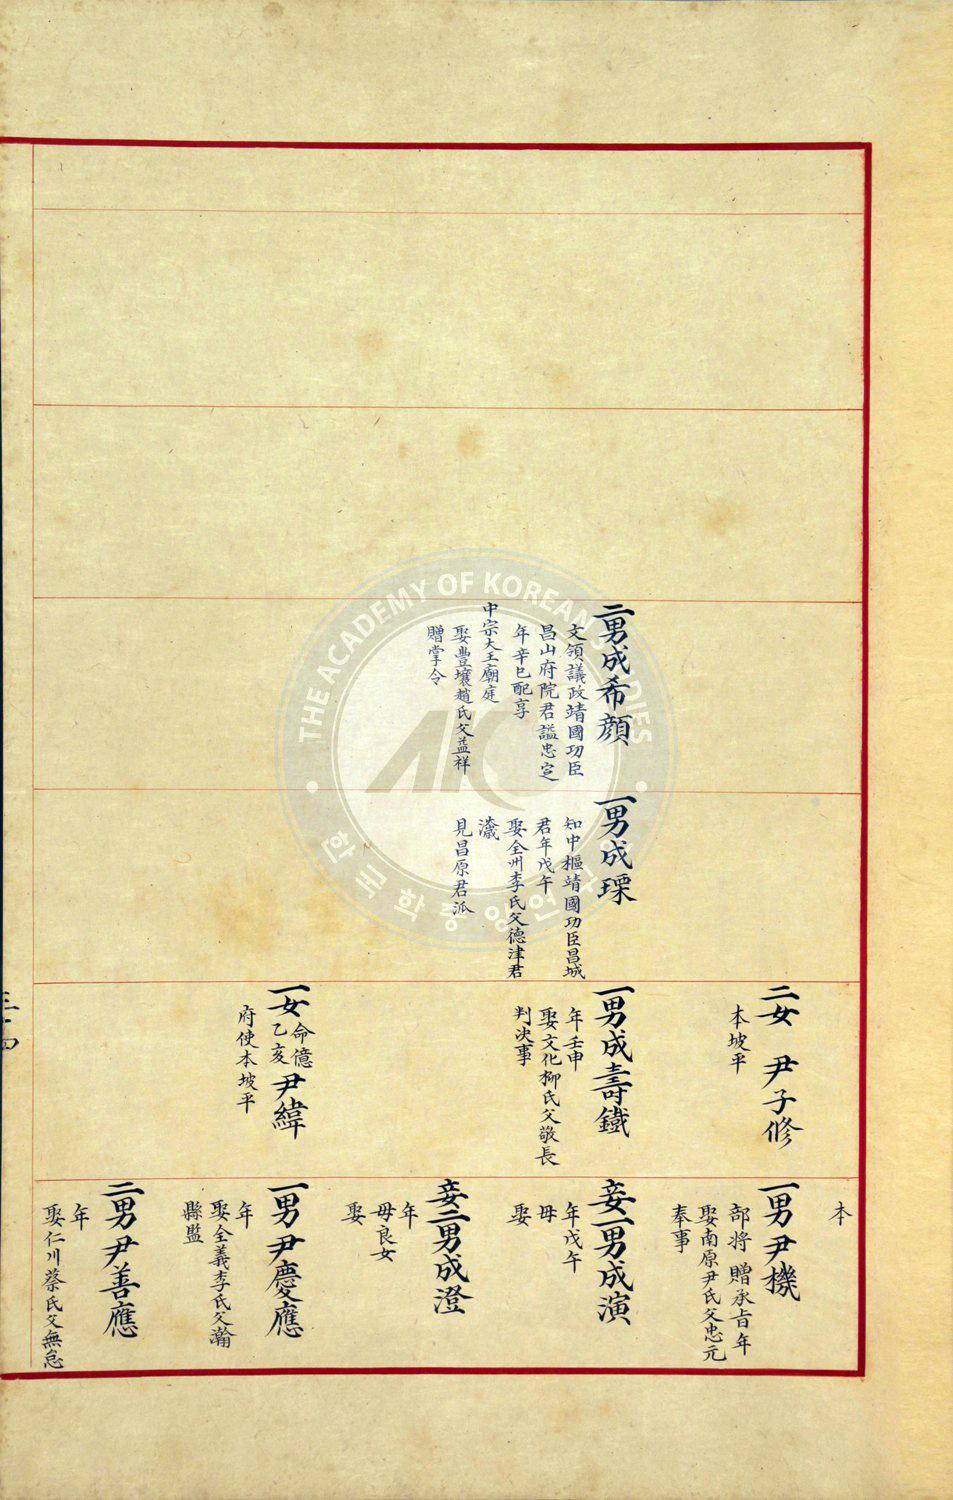 二男成希顔
文領議政靖國功臣
昌山府院君謚忠定
年辛巳配享
中宗大王廟庭
娶豊壤趙氏父益祥
贈掌令
一男成瑮
知中樞靖國功臣昌城
君年戊午
娶全州李氏父德津君
濊
見昌原君派
二女 尹子修
本坡平
一男成壽鐵
年壬申
娶文化柳氏父敬長
判决事
一女命億乙亥尹緯
府使本坡平
本
一男尹機
部將 贈承旨年
娶南原尹氏父忠元
奉事
妾一男成演
年戊午
母
娶
妾二男成澄
年
母良女
娶
一男尹慶應
年
娶全義李氏父瀚
縣監
二男尹善應
年
娶仁川蔡氏父無怠
THE ACADEMY OF KOREAN STUDIES
AKS
한국학중앙연구원